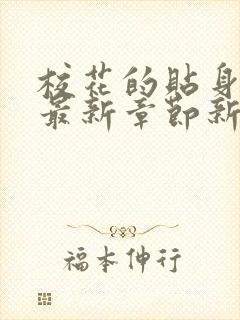 校花的贴身
最新章節新
福本伸行